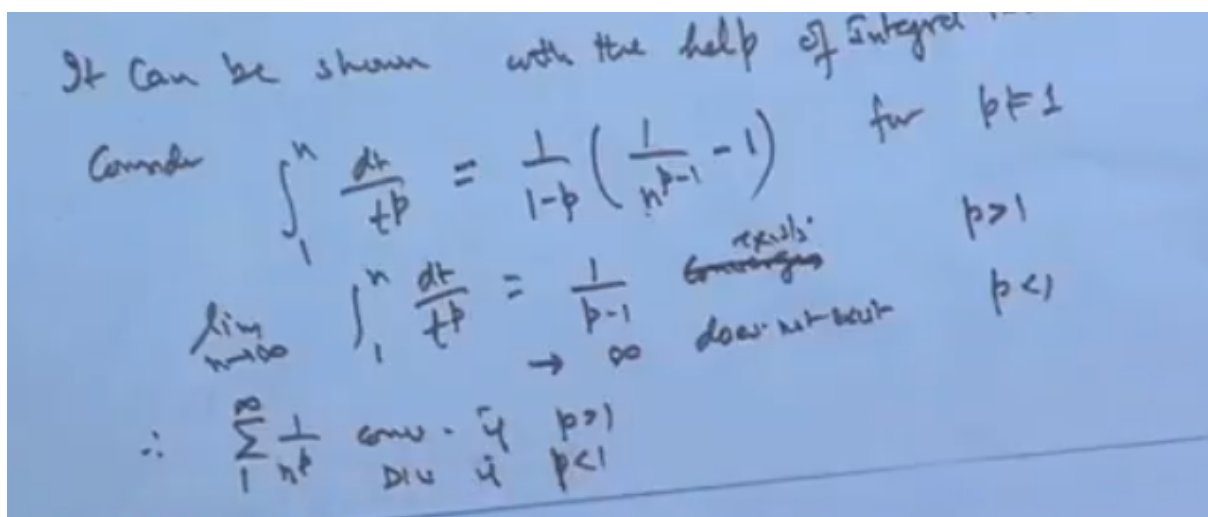 It can be shown with the help of Integral
Consider ∫₁ⁿ dt/t^p = 1/(1-p) ( 1/n^(p-1) - 1 ) for p≠1
lim n→∞ ∫₁ⁿ dt/t^p = 1/(p-1) exists p>1
→ ∞ does not exist p<1
∴ ∑₁^∞ 1/n^p conv. if p>1
Div if p<1